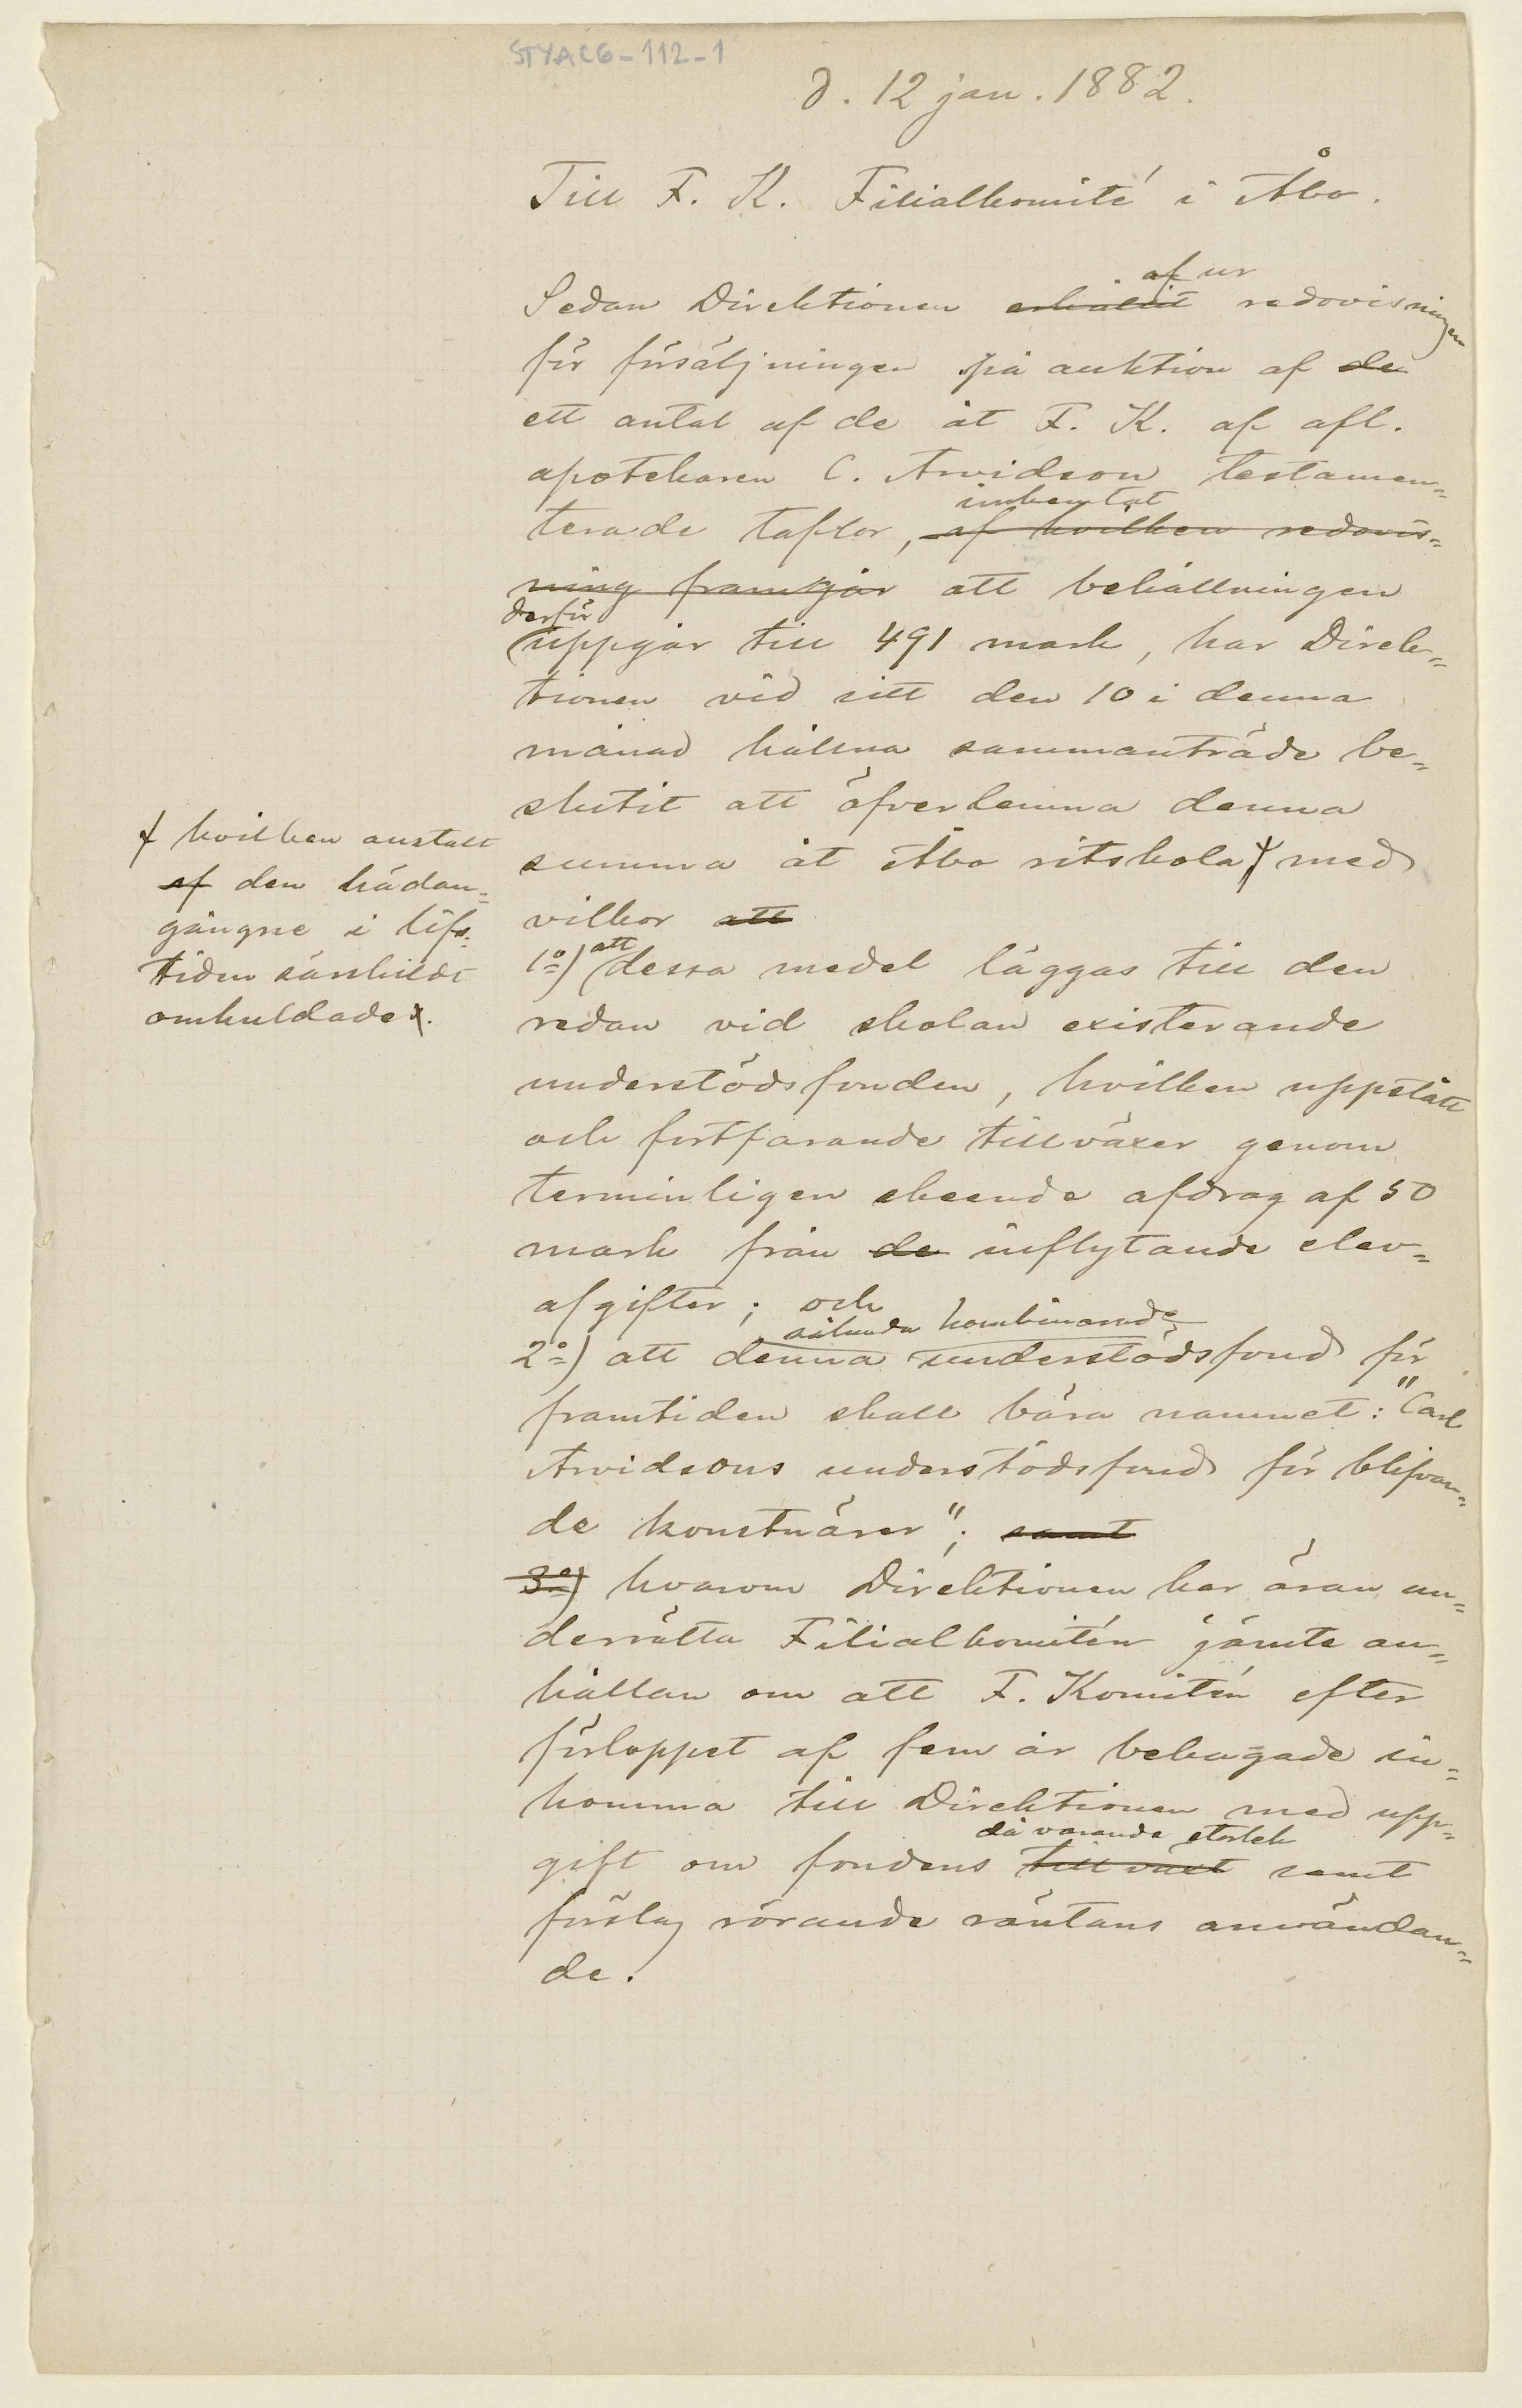 STYAC6-112-1
d. 12 jan. 1882.
Till F. K. Filialkomité i Åbo.
af ur
Sedan Direktionen erhållit redovisningen
för försäljningen på auktion af de
ett antal af de åt F. K. af afl.
apotekaren C. Arvidson testamen=
inhemtat
terade taflor, af hvilken redovis=
ning framgår att behållningen
derför
uppgår till 491 mark, har Direk=
tionen vid sitt den 10 i denna
månad hållna sammanträde be=
slutit att öfverlemna denna
summa åt Åbo ritskola med
vilkor att
hvilken anstalt
af den hädan=
gångne i lifs=
tiden särskildt
omhuldade.
att
1o) dessa medel läggas till den
redan vid skolan existerande
understödsfonden, hvilken uppstått
och fortfarande tillväxer genom
terminligen skeende afdrag af 50
mark från de inflytande elev=
afgifter; och
sålunda kombinerade
2o) att denna understödsfond för
framtiden skall bära namnet: "Carl
Arvidsons understödsfond för blifvan=
de konstnärer"; samt
3o) hvarom Direktionen har äran un=
derrätta Filialkomitén jämte an=
hållan om att F. Komitén efter
förloppet af fem år behagade in=
komma till Direktionen med upp=
då varande storlek
gift om fondens tillväxt samt
förslag rörande räntans användan=
de.